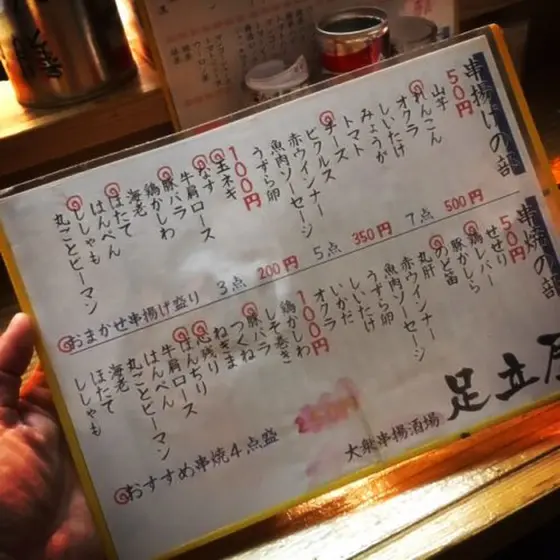 串揚げの部
50円
山芋
れんこん
オクラ
しいたけ
みょうが
トマト
チーズ
ピクルス
赤ウインナー
魚肉ソーセージ
うずら卵
100円
玉ネギ
なす
牛肩ロース
豚バラ
鶏かしわ
海老
ほたて
はんぺん
ししゃも
丸ごとピーマン
おまかせ串揚げ盛り 3点 200円 5点 350円 7点 500円
串焼の部
50円
せせり
鶏レバー
豚かしら
のど笛
丸肝
赤ウインナー
魚肉ソーセージ
うずら卵
しいたけ
いかだ
オクラ
100円
鶏かしわ
しそ巻き
豚バラ
つくね
ねぎま
心残り
ぼんちり
牛肩ロース
はんぺん
丸ごとピーマン
海老
ほたて
ししゃも
おすすめ串焼4点盛
大衆串揚酒場
足立屋